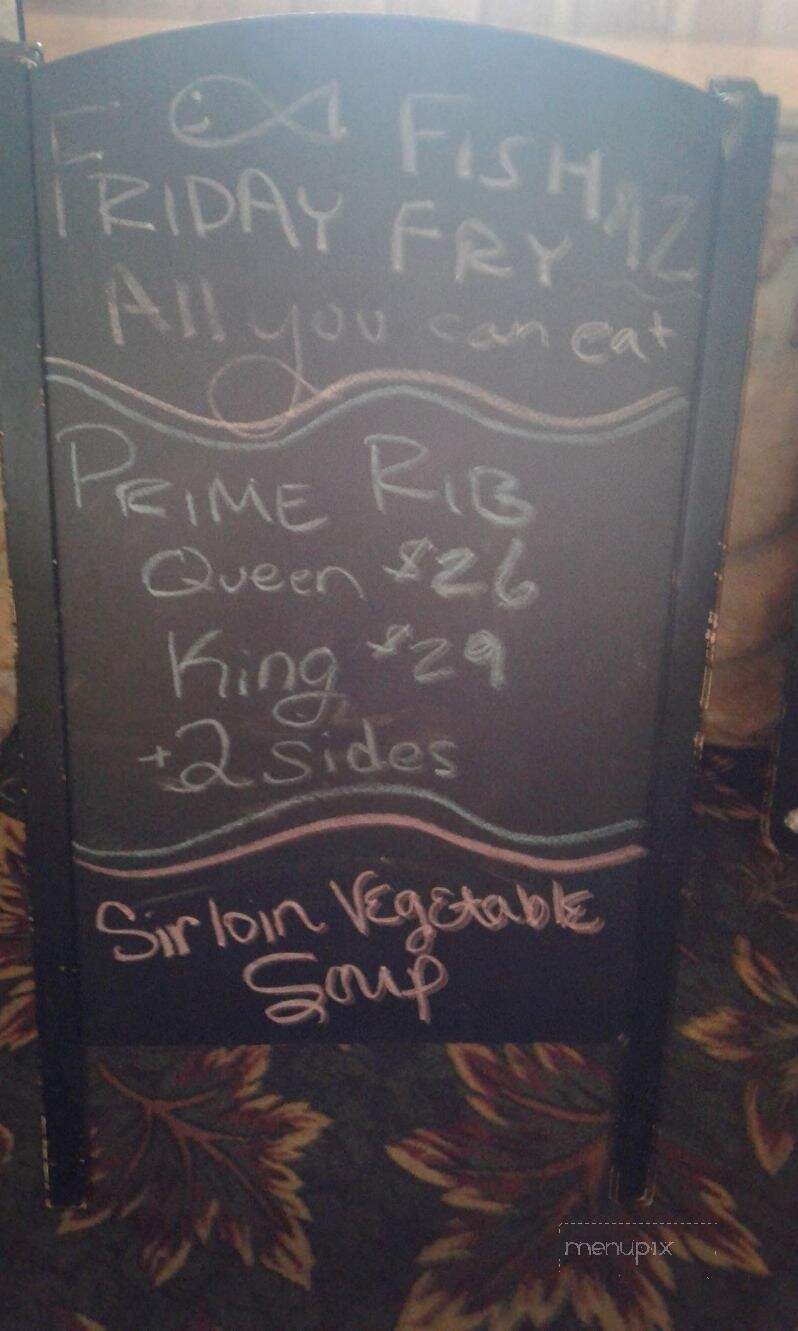 FISH
FRIDAY FRY
All you can eat
PRIME RIB
Queen $26
King $29
+2 sides
Sirloin Vegetable
Soup
menupix